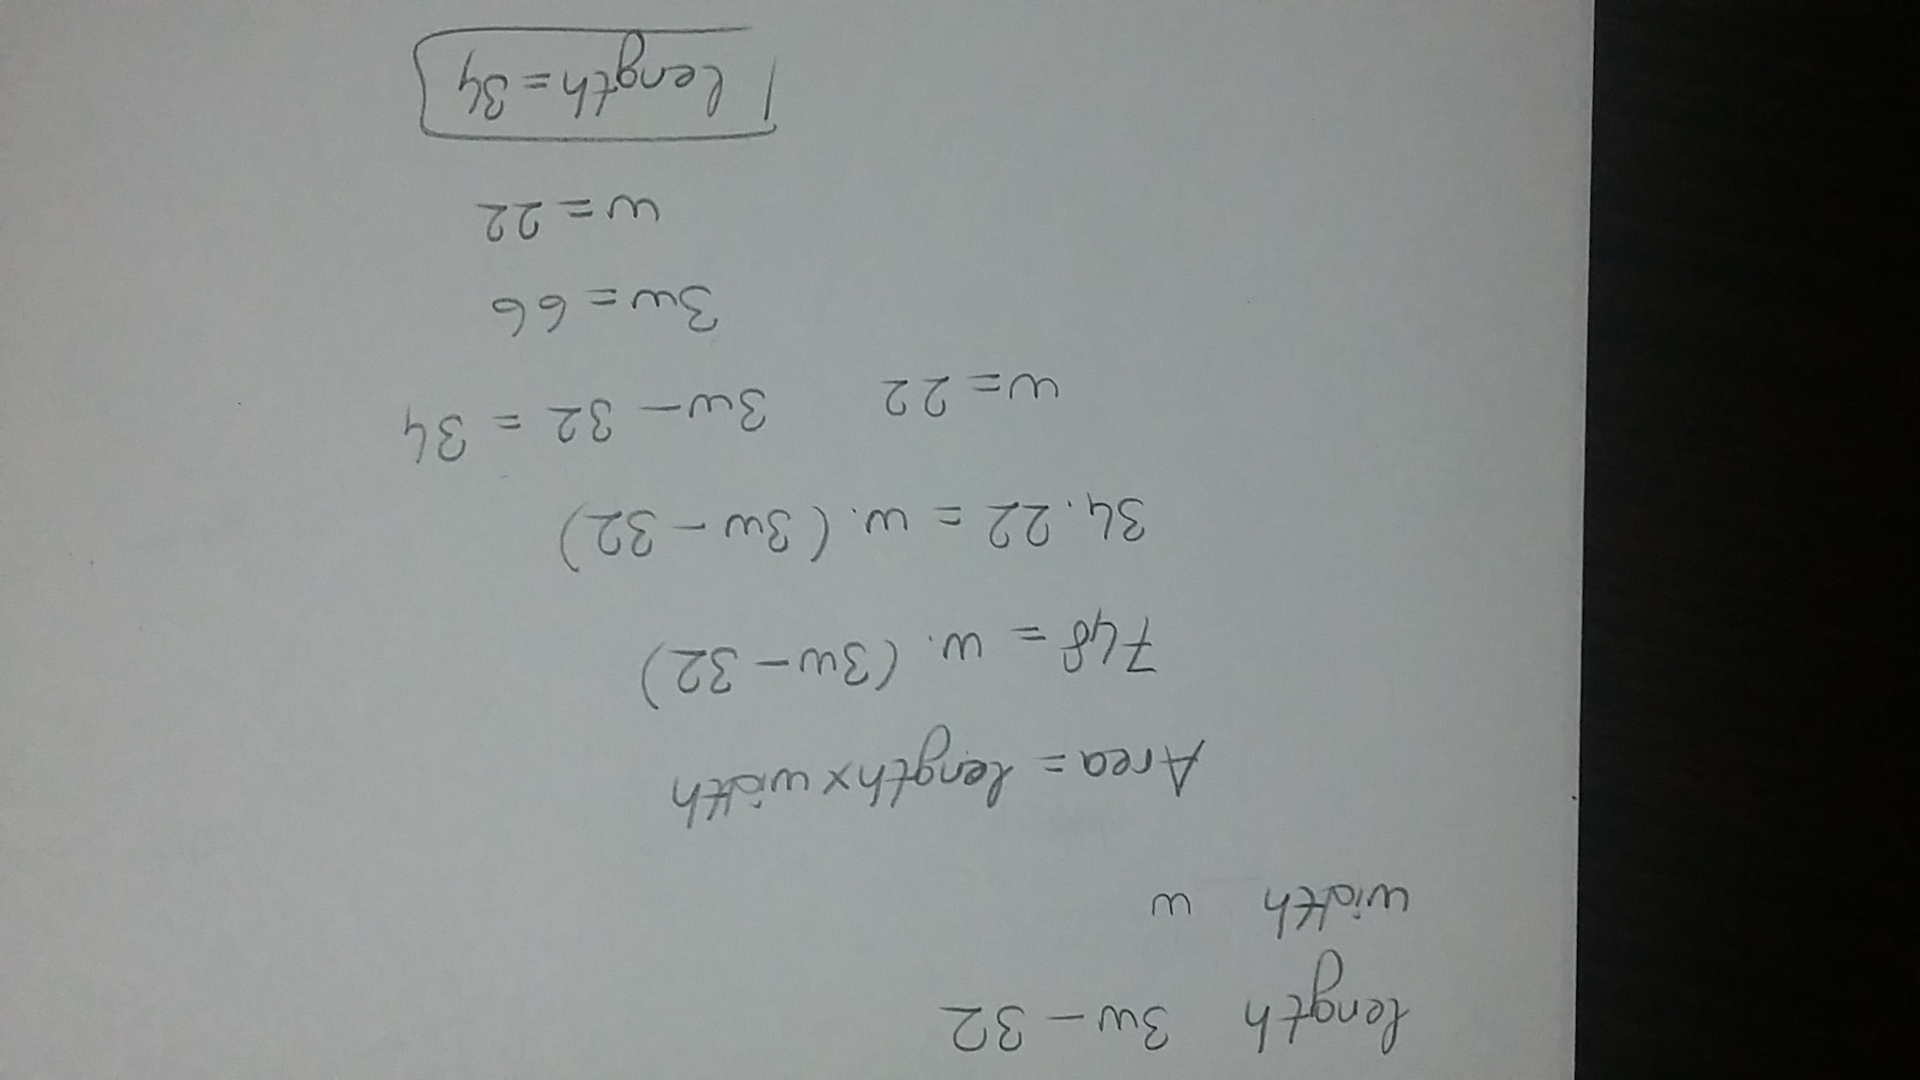 length 3w - 32
width w
Area = length x width
748 = w. (3w - 32)
34. 22 = w. (3w - 32)
w = 22 3w - 32 = 34
3w = 66
w = 22
length = 34